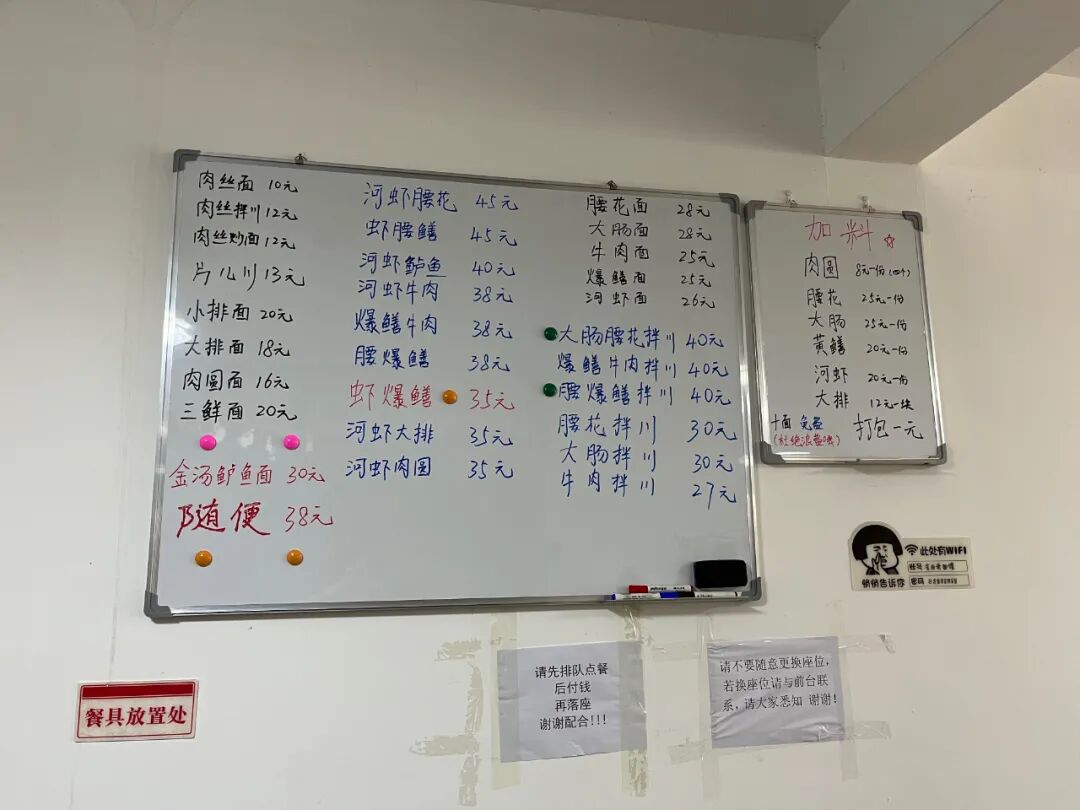 肉丝面 10元
肉丝拌川 12元
肉丝炒面 12元
片儿川 13元
小排面 20元
大排面 18元
肉圆面 16元
三鲜面 20元
金汤鲈鱼面 30元
随便 38元
河虾腰花 45元
虾腰鳝 45元
河虾鲈鱼 40元
河虾牛肉 38元
爆鳝牛肉 38元
腰爆鳝 38元
虾爆鳝 35元
河虾大排 35元
河虾肉圆 35元
腰花面 28元
大肠面 28元
牛肉面 25元
爆鳝面 25元
河虾面 26元
大肠腰花拌川 40元
爆鳝牛肉拌川 40元
腰爆鳝拌川 40元
腰花拌川 30元
大肠拌川 30元
牛肉拌川 27元
加料
肉圆 8元一份(四个)
腰花 25元一份
大肠 25元一份
黄鳝 20元一份
河虾 20元一份
大排 12元一块
打包一元
此处有WIFI
悄悄告诉你
密码
餐具放置处
请先排队点餐
后付钱
再落座
谢谢配合!!!
请不要随意更换座位,
若换座位请与前台联
系,请大家悉知 谢谢!